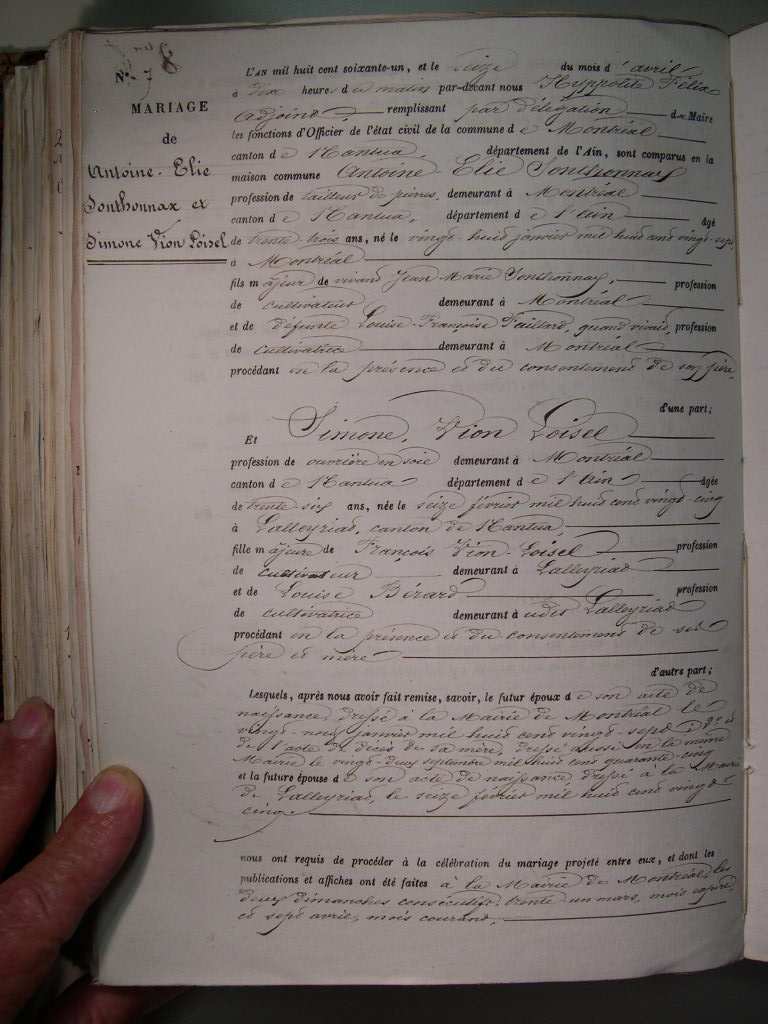 N° 7
MARIAGE
de
Antoine-Elie
Sonthonnax et
Simone Vion Loisel
L'AN mil huit cent soixante-un, et le seize du mois d'avril
à dix heures du matin par-devant nous Hyppolite Félix
adjoint remplissant par délégation du Maire
les fonctions d'Officier de l'état civil de la commune de Montréal
canton de Nantua, département de l'Ain, sont comparus en la
maison commune Antoine Elie Sonthonnax
profession de tailleur de pierres, demeurant à Montréal
canton de Nantua, département de l'ain âgé
de trente-trois ans, né le vingt-huit janvier mil huit cent vingt-sept
à Montréal
fils majeur de vivant Jean-Marie Sonthonnax, profession
de cultivateur demeurant à Montréal
et de défunte Louise-Françoise Taillard, quand vivait, profession
de cultivatrice demeurant à Montréal
procédant en la présence et du consentement de son père
d'une part;
Et Simone, Vion Loisel
profession de ouvrière en soie demeurant à Montréal
canton de Nantua département de l'ain âgée
de trente-six ans, née le seize février mil huit cent vingt-cinq
à Lalleyriat, canton de Nantua,
fille majeure de François Vion-Loisel profession
de cultivateur demeurant à Lalleyriat
et de Louise Bérard profession
de cultivatrice demeurant à udit Lalleyriat
procédant en la présence et du consentement de ses
père et mère
d'autre part;
Lesquels, après nous avoir fait remise, savoir, le futur époux de son acte de
naissance, dressé à la Mairie de Montréal le
vingt-neuf janvier mil huit cent vingt-sept et
de l'acte de décès de sa mère, dressé aussi en la même
Mairie le vingt-deux septembre mil huit cent quarante-cinq
et la future épouse de son acte de naissance, dressé à la Mairie
de Lalleyriat, le seize février mil huit cent vingt-
cinq
nous ont requis de procéder à la célébration du mariage projeté entre eux, et dont les
publications et affiches ont été faites à la Mairie de Montréal, les
deux dimanches consécutifs, trente-un mars, mois expiré,
et sept avril, mois courant,